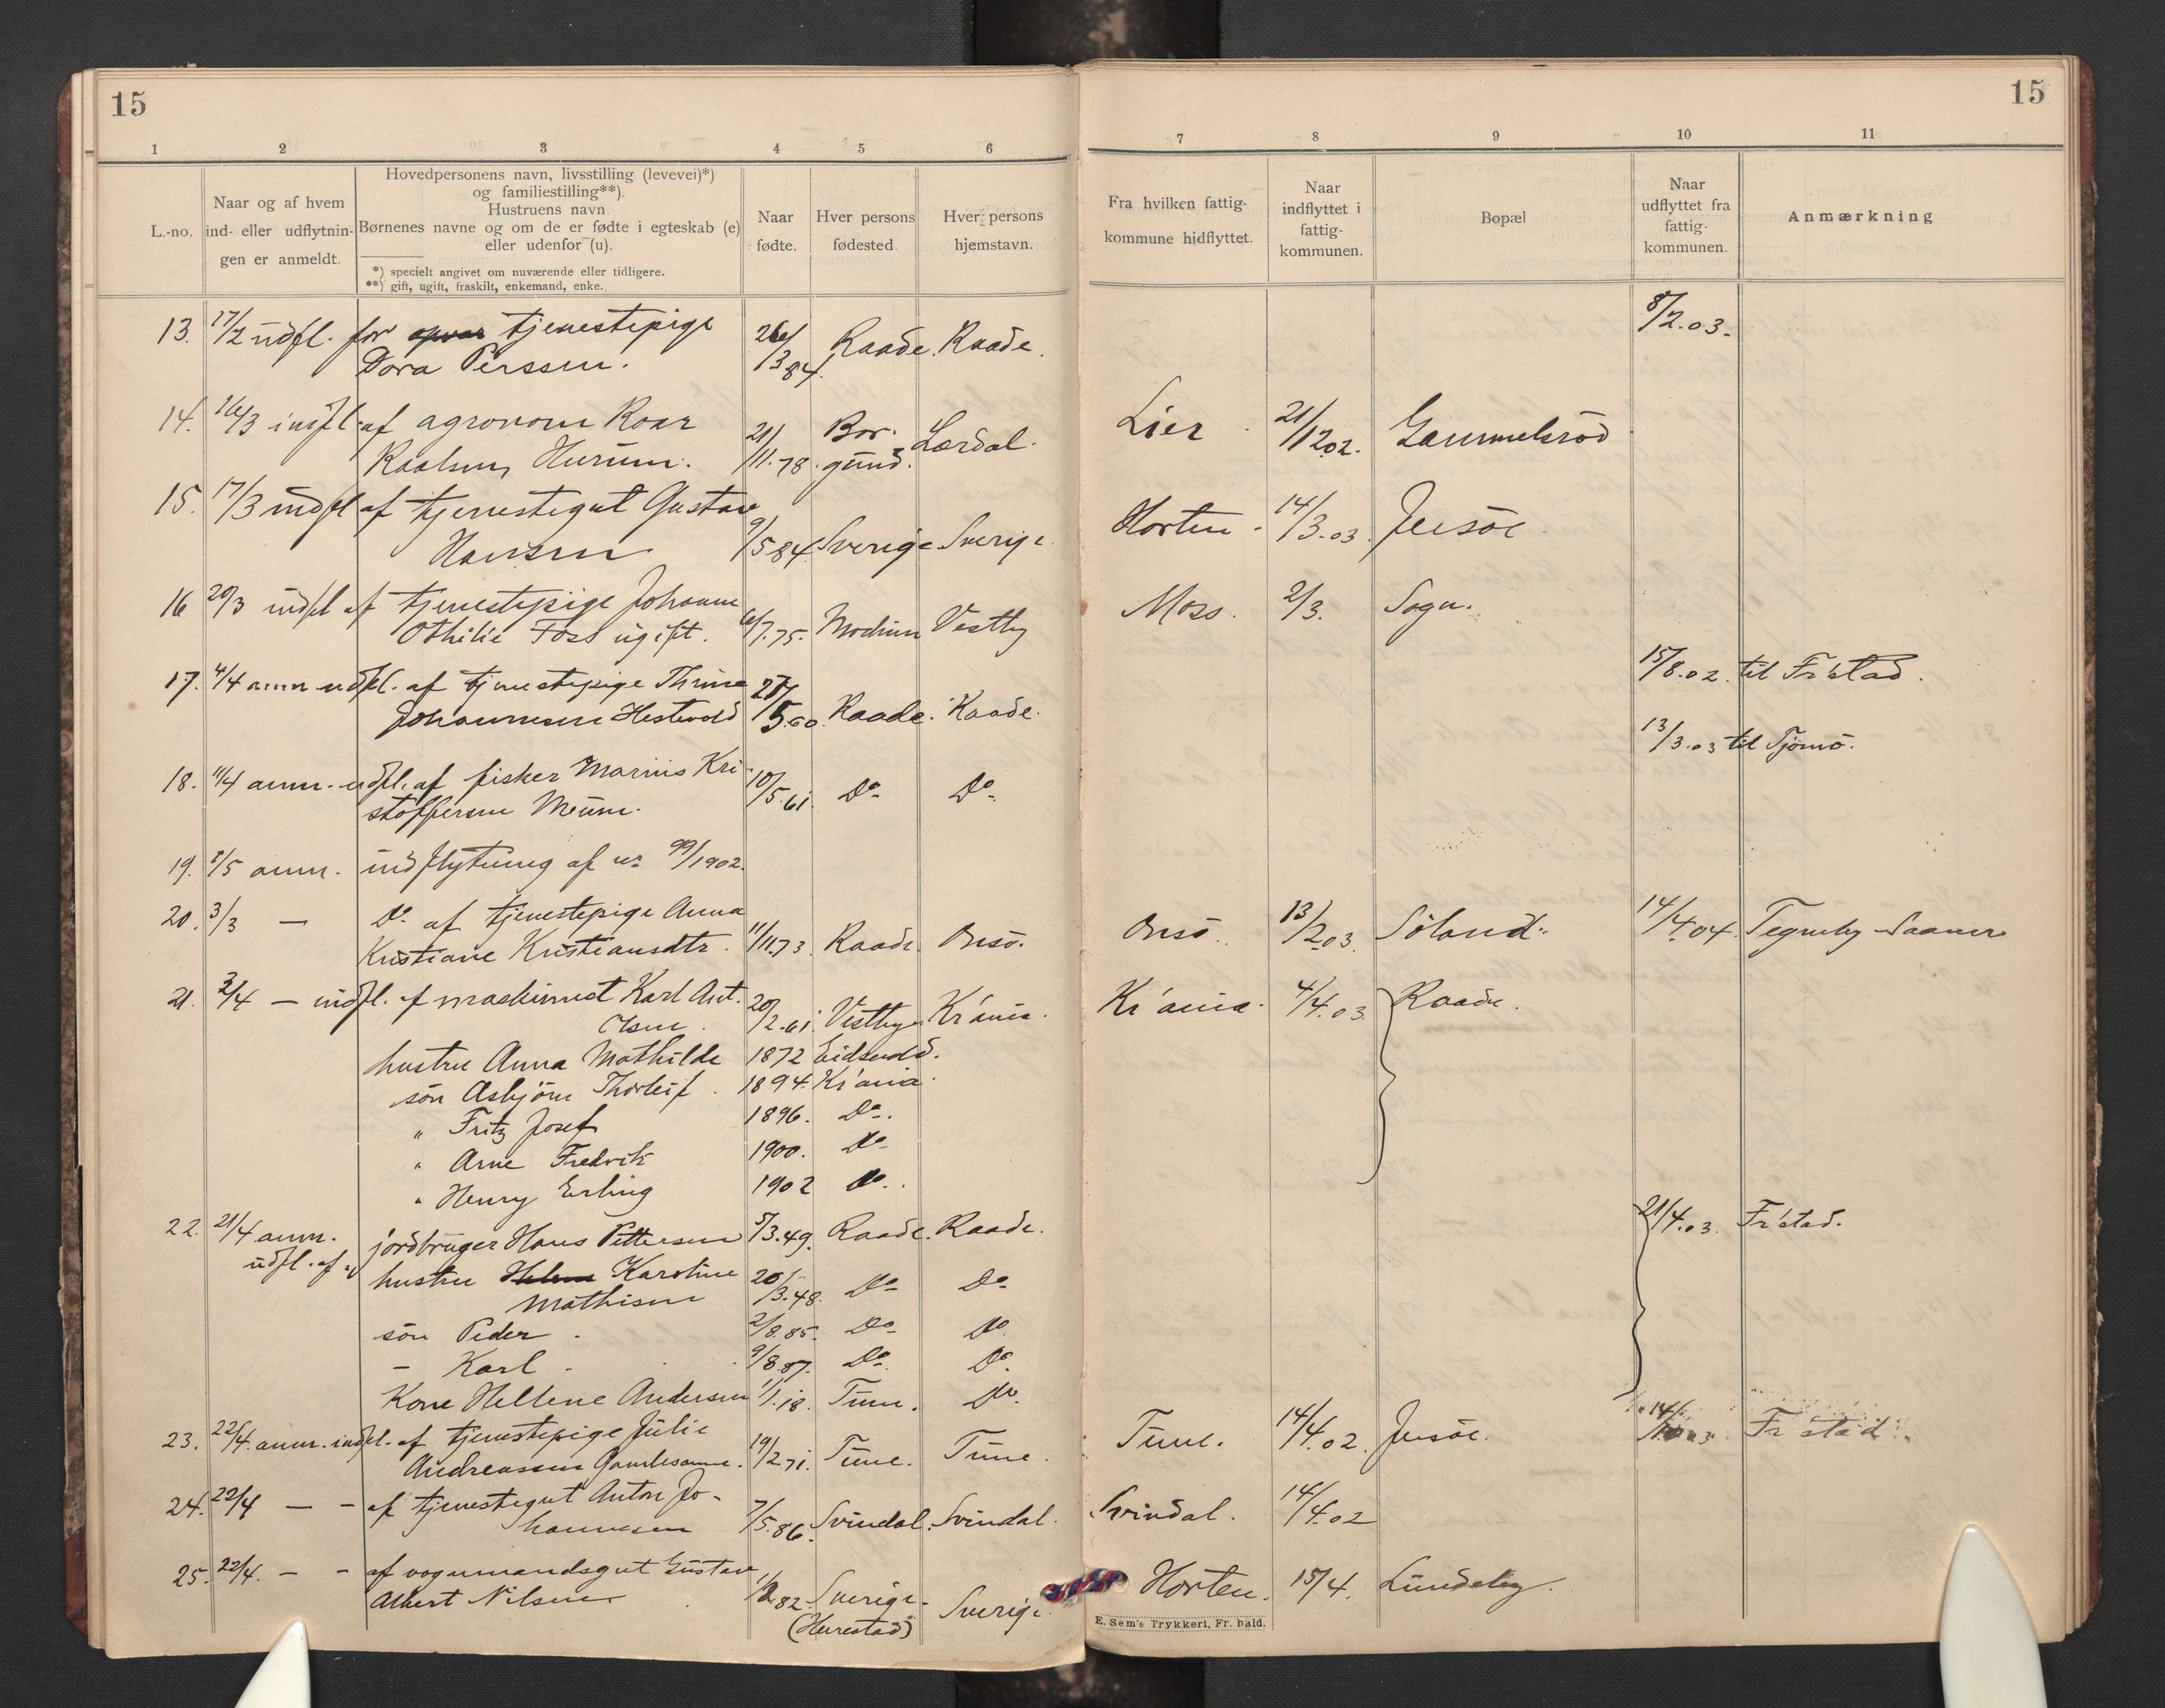 15
15
1 2 3 4 5 6 7 8 9 10 11
L.-no.
Naar og af hvem
ind- eller udflytnin-
gen er anmeldt.
Hovedpersonens navn, livsstilling (levevei)*)
og familiestilling**).
Hustruens navn
Børnenes navne og om de er fødte i egteskab (e)
eller udenfor (u).
*) specielt angivet om nuværende eller tidligere.
**) gift, ugift, fraskilt, enkemand, enke.
Naar
fødte.
Hver persons
fødested.
Hver persons
hjemstavn.
Fra hvilken fattig-
kommune hidflyttet.
Naar
indflyttet i
fattig-
kommunen.
Bopæl
Naar
udflyttet fra
fattig-
kommunen.
Anmærkning
13. 17/2 udfl. for tjenestepige 26/3 84. Raade. Raade. 8/2.03.
Dora Perssen.
14. 16/3 indfl. af agronom Roar 21/11.78. Bor- Lærdal. Lier 21/12 02. Gammelsrød
Hurum. gund.
15. 17/3 indfl af tjenestegut Gustav Horten. 14/3.03. Jersøe
Hansen 9/5 84 Sverige Sverige.
16 20/3 indfl af tjenestepige Johanne Moss. 2/3. Sogn.
Othilie Foss ugift. 6/7.75. Modum Vestby
17. 4/4 anm udfl. af tjenestepige Thrine 27/5.60. Raade. Raade. 15/8.02. til Fr'stad.
Johannesen Hestevold
18. 11/4 anm. udfl. af fisker Marius Kri- 10/5.61. Do Do 13/3.03 til Tjømø.
stoffersen Meum.
19. 8/5 anm. indflytning af no 99/1902.
20. 3/3 — Do af tjenestepige Anna Onsø. 13/2.03. Søland. 14/4.04. Tegneby Saaner
Kristiane Kristiansdtr. 11/11.73. Raade. Onsø.
21. 3/4 — indfl. af maskinist Karl Ant. 20/2.61. Vestby Kr'ania. Kr'ania. 4/4.03. Raade.
Olsen.
hustru Anna Mathilde 1872 Eidsvold.
søn Asbjørn Thorleif. 1894. Kr'ania.
" Fritz Josef 1896. Do.
" Arne Fredrik 1900. Do
" Henry Erling 1902 Do.
22. 21/4 anm. jordbruger Hans Pettersen 5/3.49. Raade. Raade. 21/4.03. Fr'stad.
udfl. af
hustru Karoline 20/3.48. Do Do
Mathisen
søn Peder. 2/8.85. Do Do
— Karl. 9/8.87. Do. Do.
Kone Hellene Andersen 1/1.18. Tune. Do.
23. 22/4. anm. indfl. af tjenestepige Julie Tune. 14/4.02. Jersøe. Fr'stad.
Andreassen 19/2.71. Tune. Tune.
24. 22/4 — — af tjenestegut Anton Jo- Svindal. 14/4.02
hannesen 7/5.86. Svindal. Svindal.
25. 22/4. — — af vognmandsgut Gustav Horten. 15/4. Lundeby.
Albert Nilsen 82. Sverige. Sverige.
E. Sem's Trykkeri, Fr.hald.